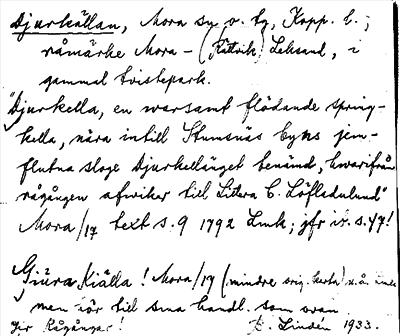 Djurkällan, Mora sn o. tg, Kopp. l.;
råmärke Mora – (Rättvik) Leksand, i
gammal tvistepark.
"Djurkella, en warsamt flödande spring-
kella, nära intill Stumsnäs byns jem-
flutna sloge Djurkellänget benämd, hwarifrån
rågången afwiker till Littera C. Löfladulund"
Mora/17 text s. 9 1792 Lmk; jfr ir. s. 47!
Giüra Kiälla! Mora/19 (mindre orig. karta)
men rör till sma handl. som ovan
Jfr Rågångar! B. Lindén 1933.